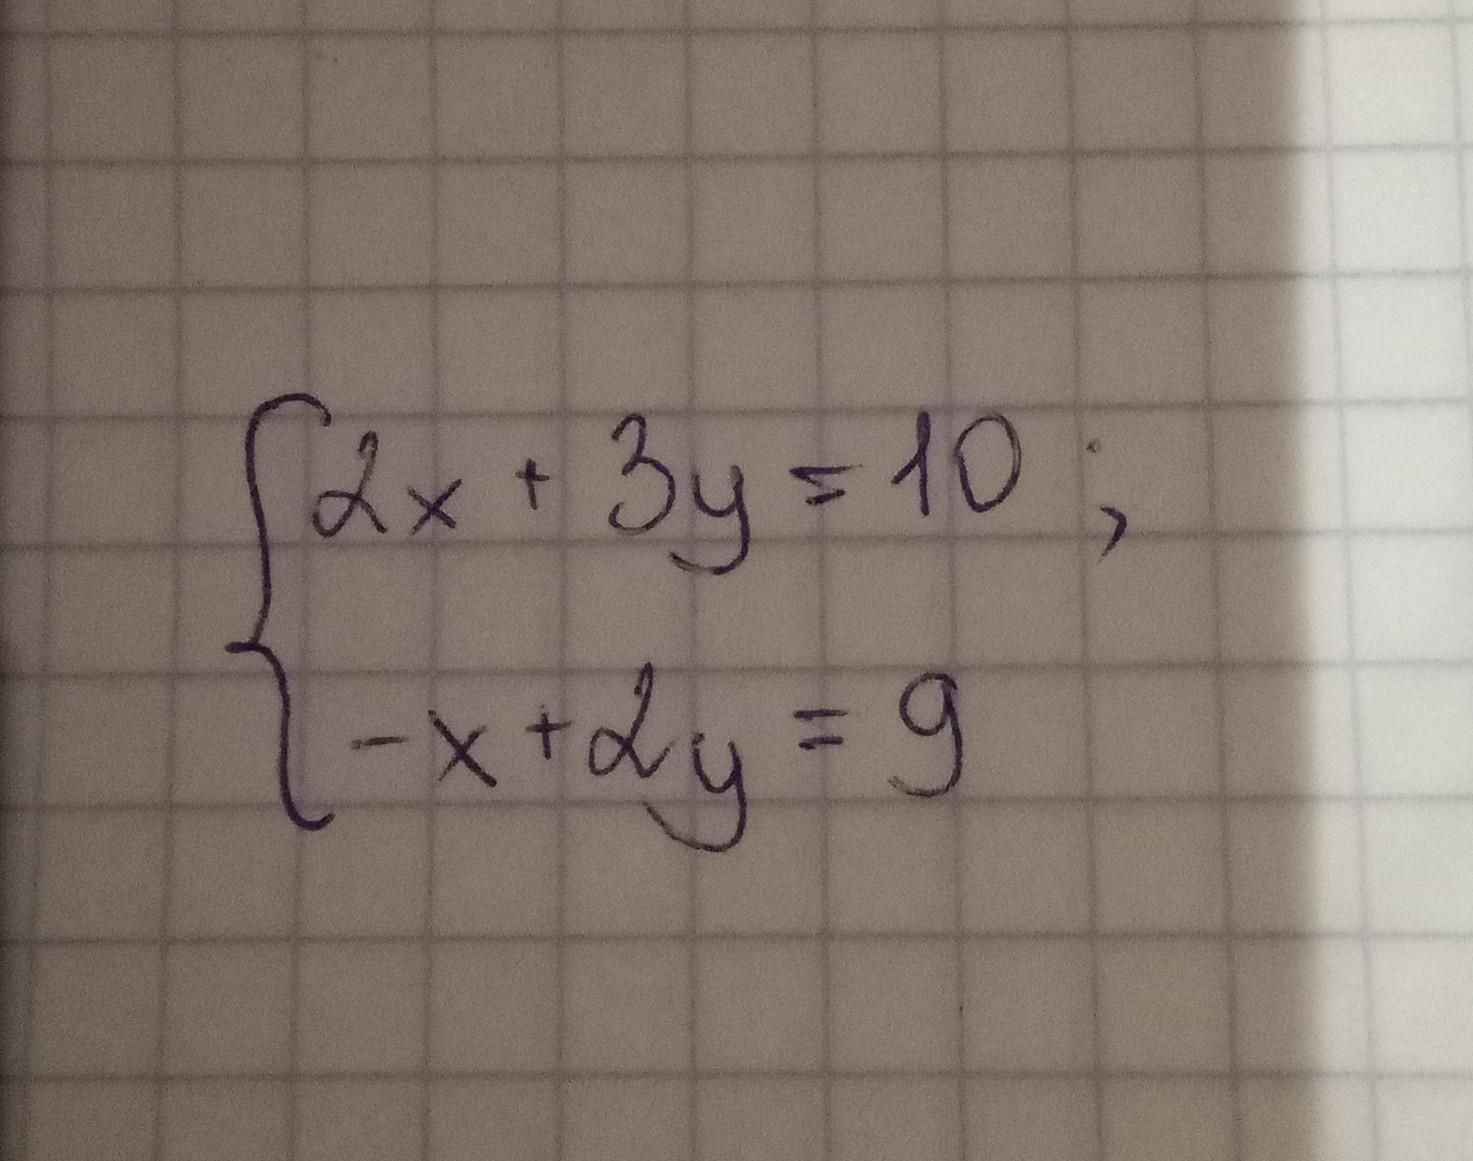 2x + 3y = 10;
-x + 2y = 9